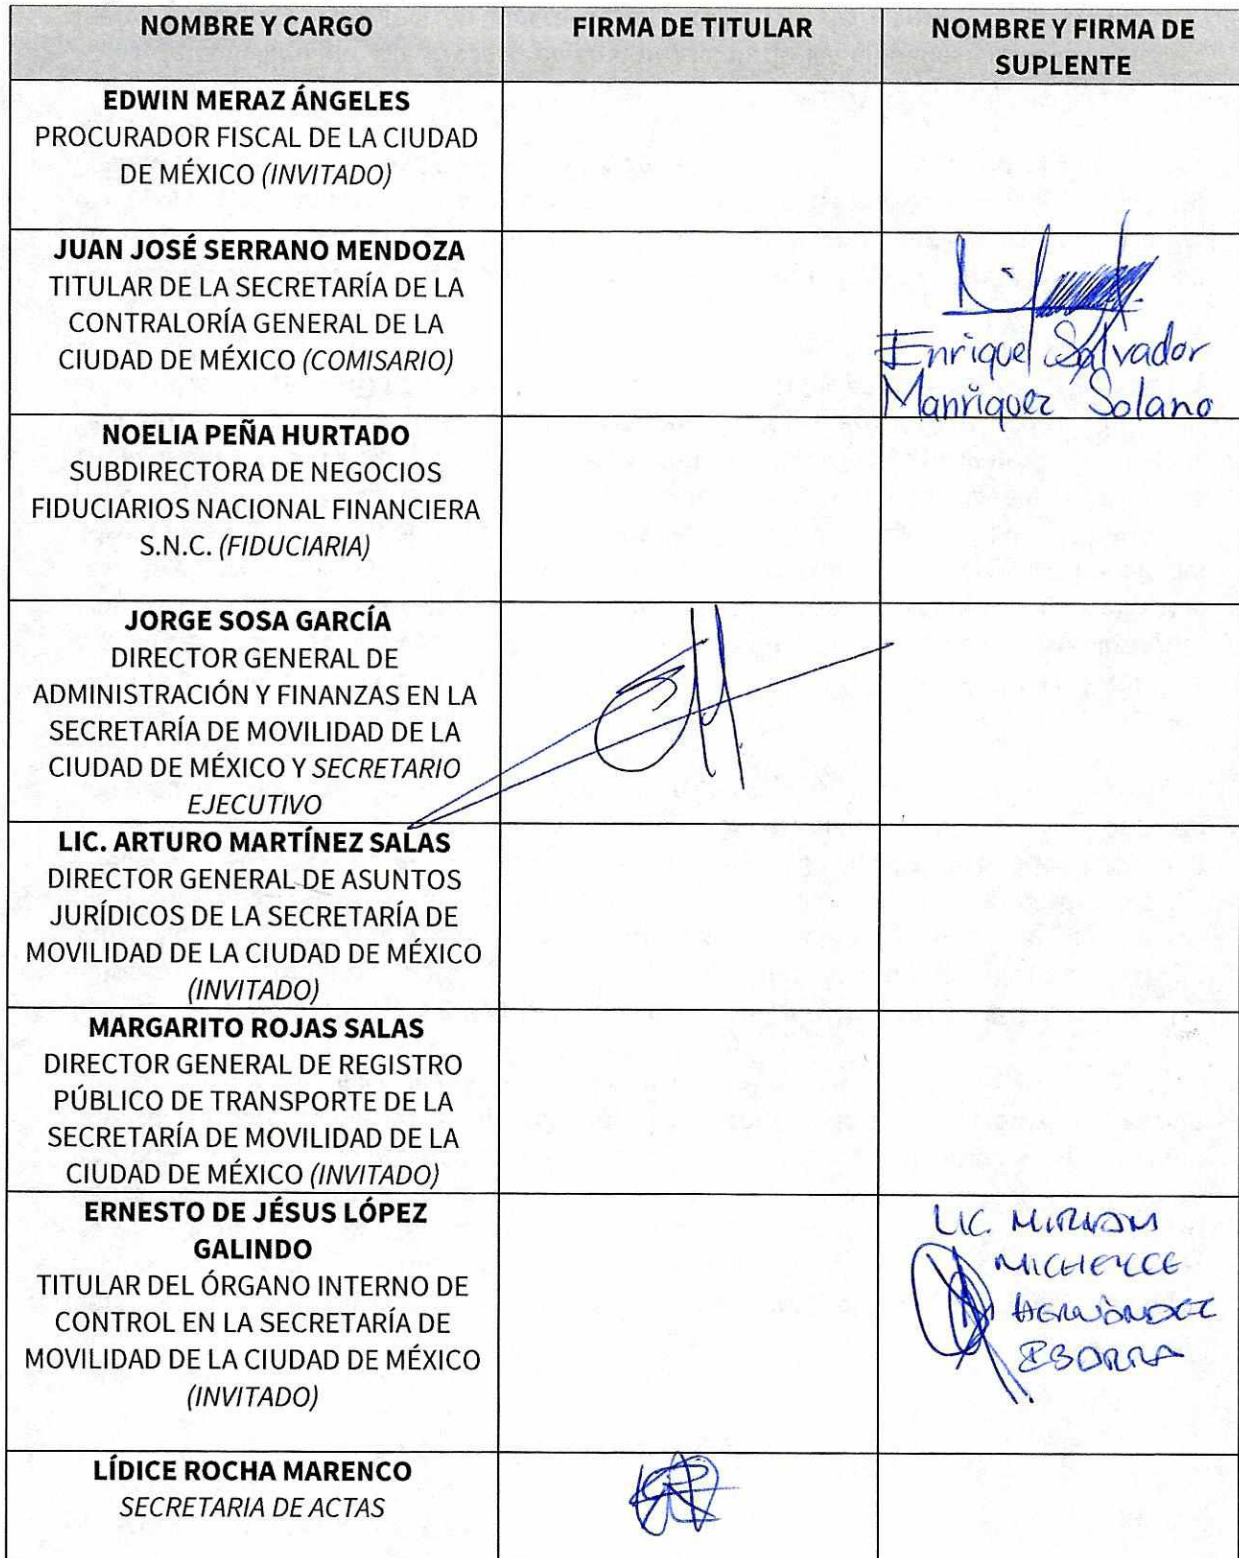 NOMBRE Y CARGO
FIRMA DE TITULAR
NOMBRE Y FIRMA DE
SUPLENTE
EDWIN MERAZ ÁNGELES
PROCURADOR FISCAL DE LA CIUDAD
DE MÉXICO (INVITADO)
JUAN JOSÉ SERRANO MENDOZA
TITULAR DE LA SECRETARÍA DE LA
CONTRALORÍA GENERAL DE LA
CIUDAD DE MÉXICO (COMISARIO)
Enrique Salvador
Manriquez Solano
NOELIA PEÑA HURTADO
SUBDIRECTORA DE NEGOCIOS
FIDUCIARIOS NACIONAL FINANCIERA
S.N.C. (FIDUCIARIA)
JORGE SOSA GARCÍA
DIRECTOR GENERAL DE
ADMINISTRACIÓN Y FINANZAS EN LA
SECRETARÍA DE MOVILIDAD DE LA
CIUDAD DE MÉXICO Y SECRETARIO
EJECUTIVO
LIC. ARTURO MARTÍNEZ SALAS
DIRECTOR GENERAL DE ASUNTOS
JURÍDICOS DE LA SECRETARÍA DE
MOVILIDAD DE LA CIUDAD DE MÉXICO
(INVITADO)
MARGARITO ROJAS SALAS
DIRECTOR GENERAL DE REGISTRO
PÚBLICO DE TRANSPORTE DE LA
SECRETARÍA DE MOVILIDAD DE LA
CIUDAD DE MÉXICO (INVITADO)
ERNESTO DE JÉSUS LÓPEZ
GALINDO
TITULAR DEL ÓRGANO INTERNO DE
CONTROL EN LA SECRETARÍA DE
MOVILIDAD DE LA CIUDAD DE MÉXICO
(INVITADO)
LIC. MIRIAM
MICHELLE
HERNÁNDEZ
LÍDICE ROCHA MARENCO
SECRETARIA DE ACTAS